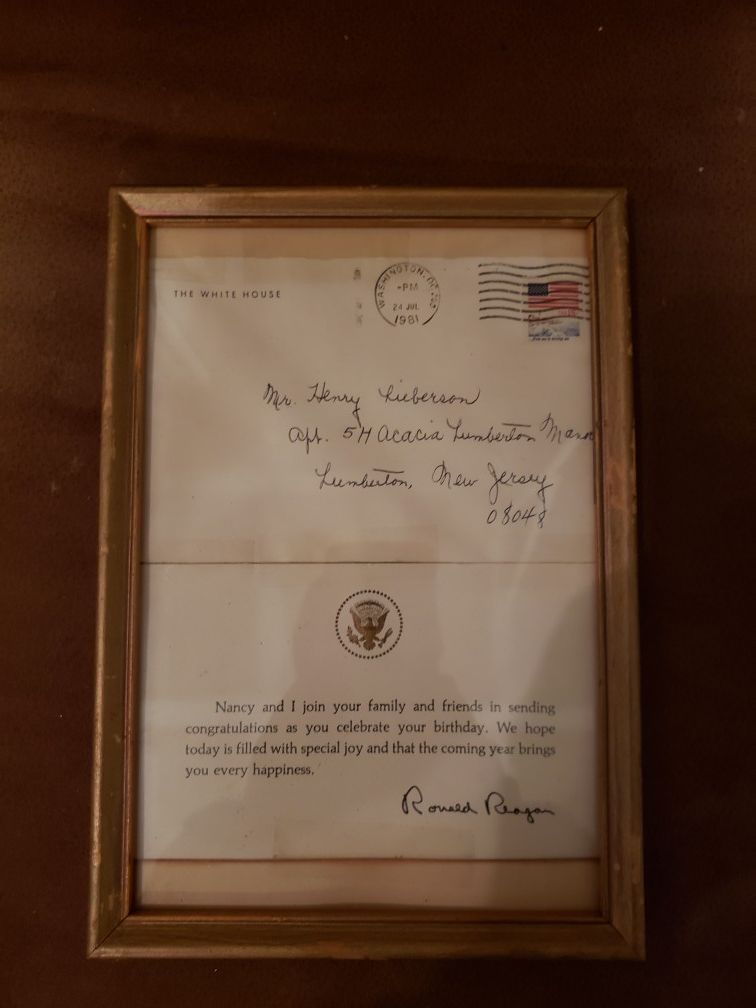 THE WHITE HOUSE
WASHINGTON, DC
-PM
24 JUL
1981
Mr. Henry Lieberson
Apt. 5H Acacia Lumberton Manor
Lumberton, New Jersey
08048
Nancy and I join your family and friends in sending
congratulations as you celebrate your birthday. We hope
today is filled with special joy and that the coming year brings
you every happiness.
Ronald Reagan